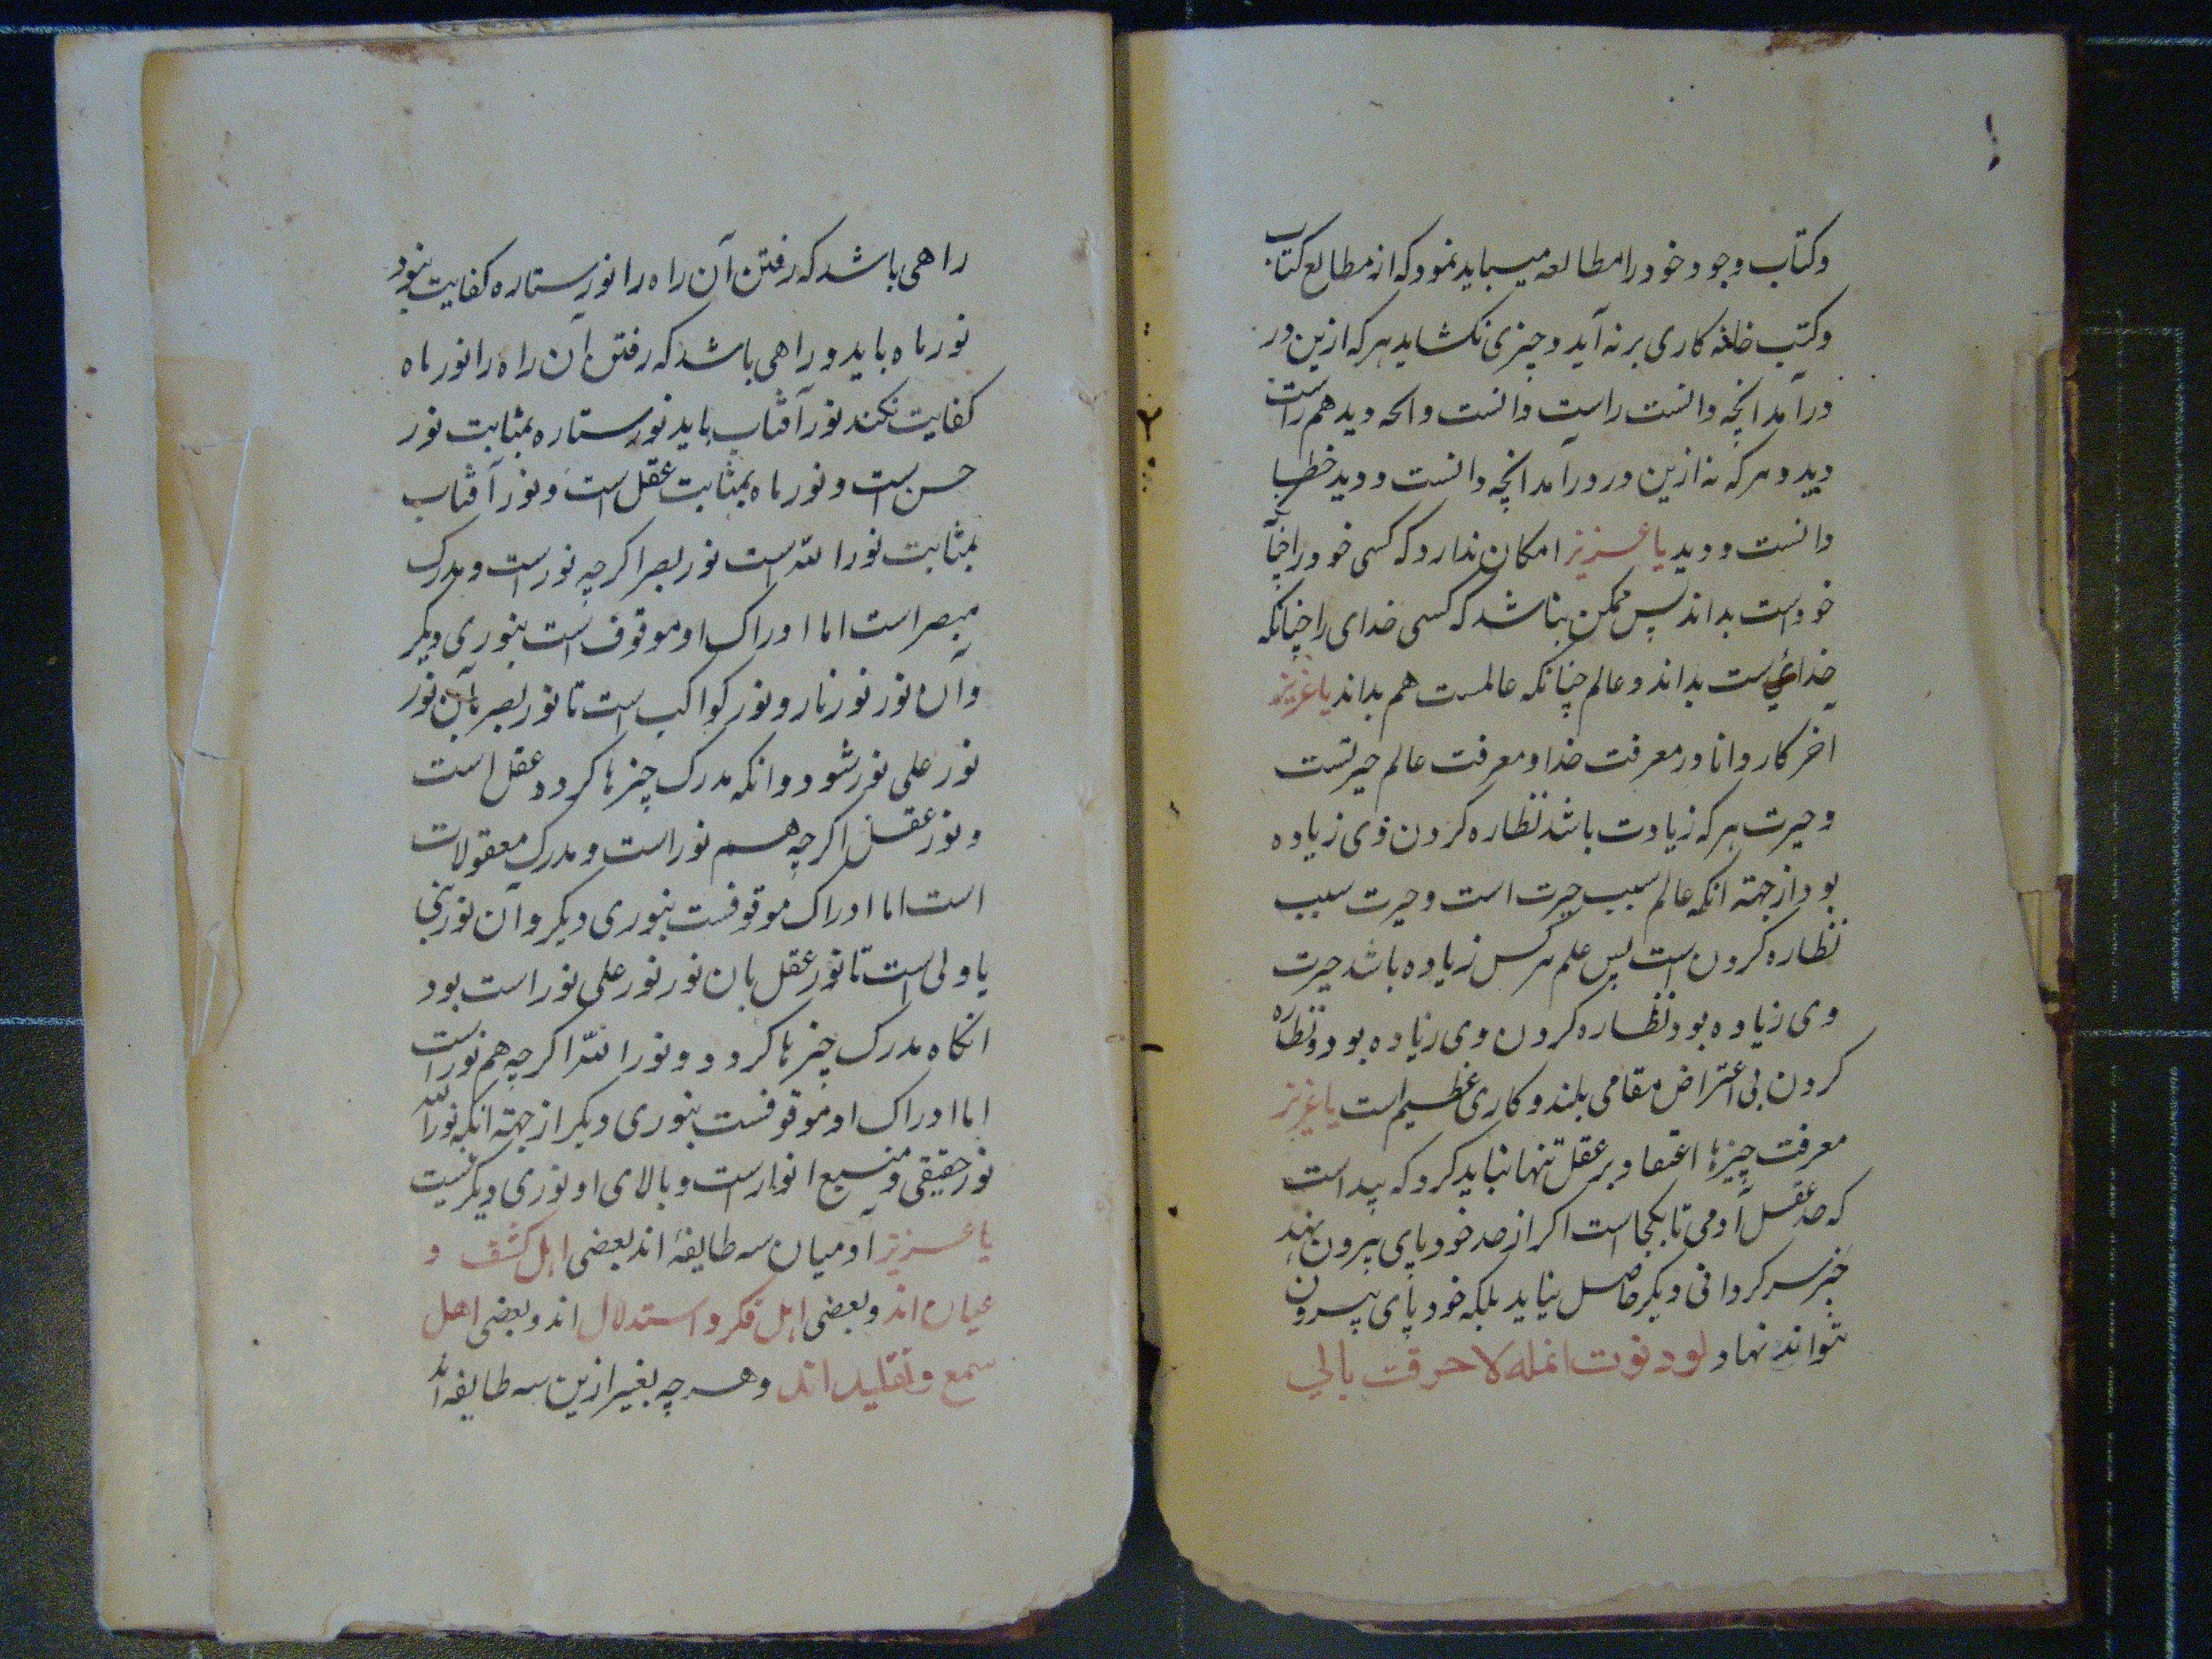 وکتاب وجود خود را مطالعه میباید نمود که از مطالع کتاب
وکتب خانه کاری بر نه آید و چیزی نکشاید هر که ازین در
در آمد انچه دانست راست دانست و انچه دید هم راست
دید و هر که نه ازین در در آمد انچه دانست و دید خطا
دانست و دید یا عزیز امکان ندارد که کسی خود را چنا
خود است بداند پس ممکن نباشد که کسی خدای را چنانکه
خدائی ست بداند و عالم چنانکه عالمست هم بداند یا عزیز
آخر کار دانا در معرفت خدا و معرفت عالم حیرتست
و حیرت هر که زیادت باشد نظاره کردن وی زیاده
بود از جهة انکه عالم سبب حیرت است و حیرت سبب
نظاره کردن است پس علم هر کس زیاده باشد حیرت
وی زیاده بود نظاره کردن وی زیاده بود و نظاره
کردن بی اعتراض مقامی بلند و کاری عظیم است یا عزیز
معرفت چیزها اعتقاد بر عقل تنها نباید کرد که پیداست
که حد عقل آدمی تا بکجاست اکر از حد خود پای بیرون نهد
جز سر کردانی دیکر حاصل نیاید بلکه خود پای بیرون
نتواند نهاد لو دنوت انمله لاحرقت بالي
راهی باشد که رفتن آن راه را نور ستاره کفایت نبود
نور ماه باید و راهی باشد که رفتن آن راه را نور ماه
کفایت نکند نور آفتاب باید نور ستاره بمثابت نور
حس است و نور ماه بمثابت عقل است و نور آفتاب
بمثابت نور الله است نور بصر اکر چه نور است و مدرک
مبصر است اما ادراک او موقوف است بنوری دیکر
و آن نور نور نار و نور کواکب است تا نور بصر بآن نور
نور علی نور شود و انکه مدرک چیزها کردد عقل است
و نور عقل اکر چه هم نور است و مدرک معقولات
است اما ادراک موقوفست بنوری دیکر و آن نور نبی
یا ولی است تا نور عقل بان نور نور علی نور است بود
انکاه مدرک چیزها کردد و نور الله اکر چه هم نور است
اما ادراک او موقوفست بنوری دیکر از جهة انکه نور الله
نور حقیقی و منبع انوار است و بالای او نوری دیکر نیست
یا عزیز آدمیان سه طایفۀ اند بعضی اهل کشف و
عیان اند و بعضی اهل فکر و استدلال اند و بعضی اهل
سمع و تقلید اند و هر چه بغیر ازین سه طایفه اند